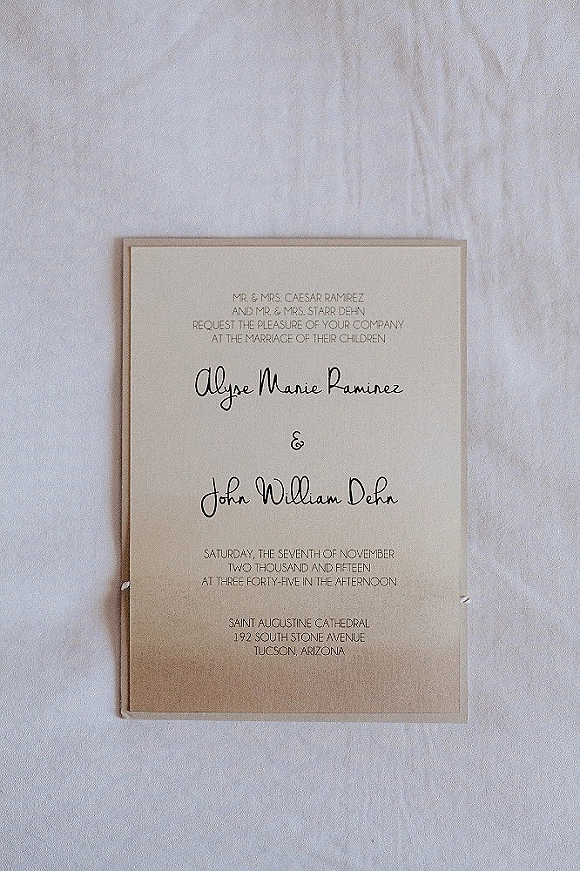 MR. & MRS. CAESAR RAMIREZ
AND MR. & MRS. STARR DEHN
REQUEST THE PLEASURE OF YOUR COMPANY
AT THE MARRIAGE OF THEIR CHILDREN
Alyse Marie Ramirez
&
John William Dehn
SATURDAY, THE SEVENTH OF NOVEMBER
TWO THOUSAND AND FIFTEEN
AT THREE FORTY-FIVE IN THE AFTERNOON
SAINT AUGUSTINE CATHEDRAL
192 SOUTH STONE AVENUE
TUCSON, ARIZONA